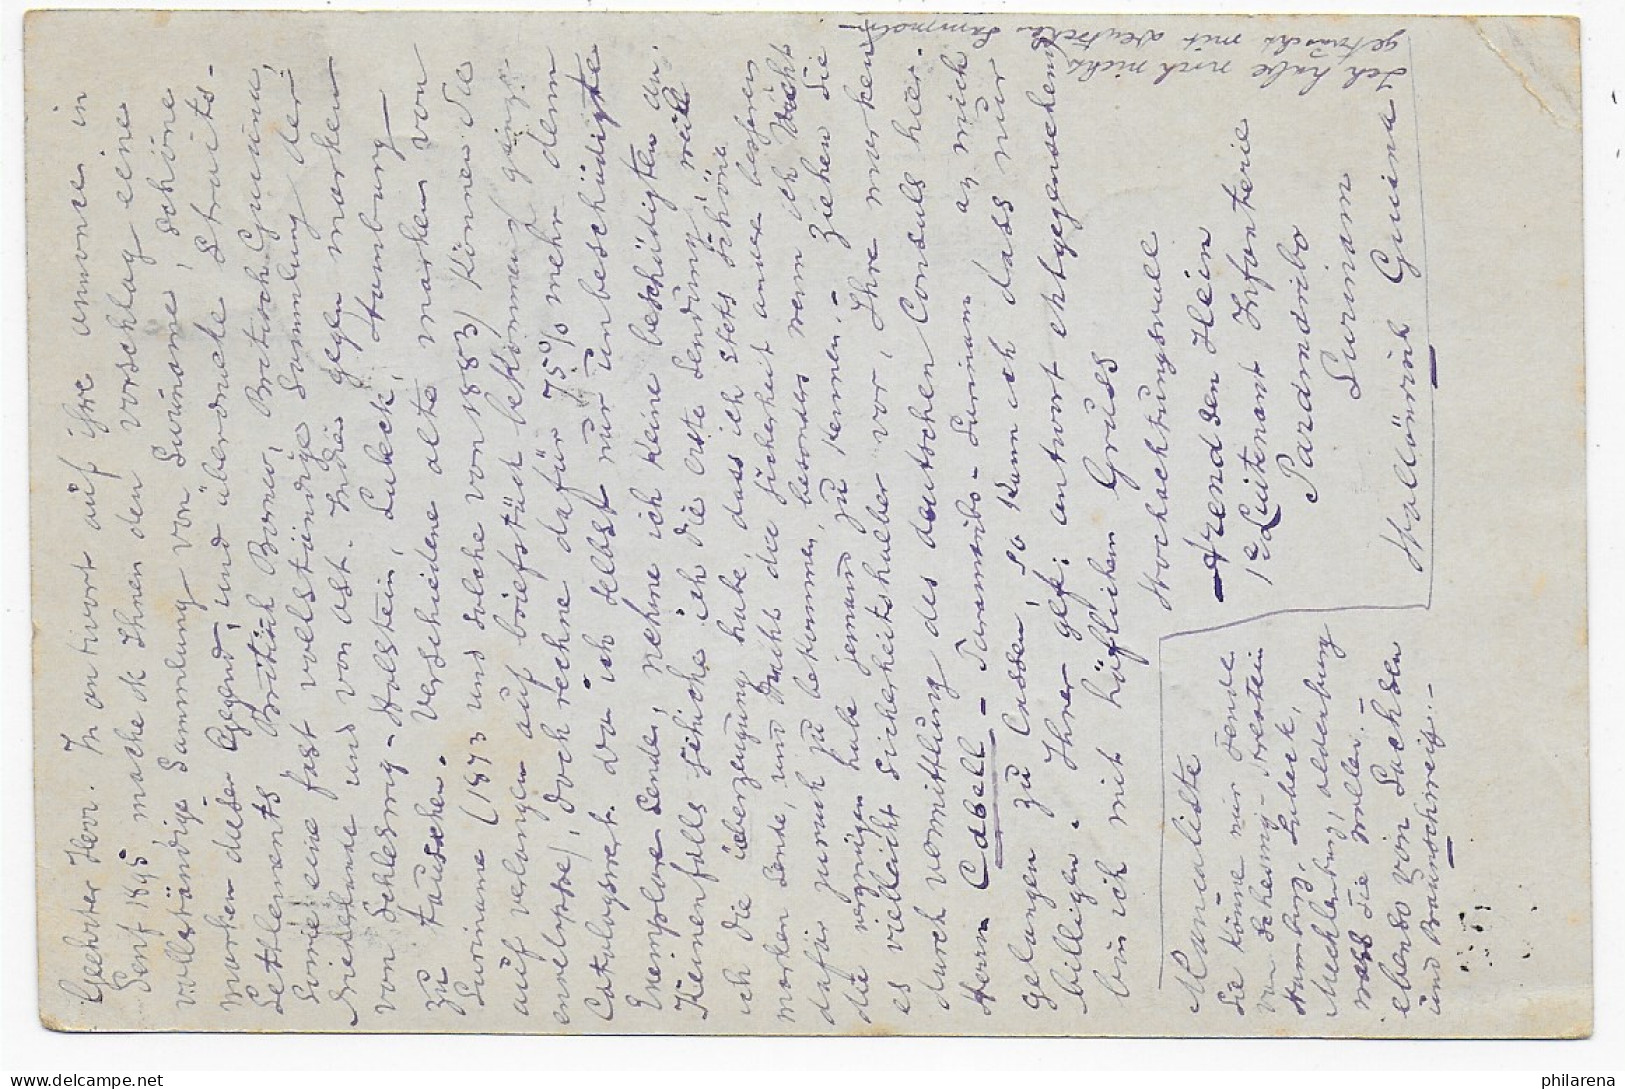 Geehrter Herr. In antwort auf ihre annonce in
Senf 1895 mache ik Ihnen den vorschlag eine
vollständige Sammlung von Suriname, schöne
marken dieser Gegend, und überdruckte Straits-
Setlements British Borneo, Britisch Guiana,
sowie eine fast volständige Sammlung der
Niederlande und von ost-Indië gegen marken
von Schleswig-Holstein, Lubeck, Hamburg
zu tauschen. Verschiedene alte marken von
Suriname (1873 und solche von 1883) können Sie
auf verlangen auf briefstück bekommen/ ganze
envelppe), doch rechne dafür 75% mehr denn
Catalogswert. Da ich selbst nur unbeschädigte
Exemplare sende, nehme ich keine beschädigten an.
Keinenfalls schicke ich die erste Sendung, weil
ich die überzeugung habe, dass ich stets schöne
marken sende, und nicht die sicherheit answer besseres
dafür zuruck zu bekommen, besonders wenn ich nicht
die vergnügen habe jemand zu kennen.- ziehen Sie
es vielleicht sicherheitshalber vor, Ihre marken
durch vermittlung des deutschen Consuls hier-
Herrn Cabell - Paramaribo - Surinam an mich
gelangen zu lassen, so kann ich dass nur
billigen. Ihrer gef: antwort entgegensehend
bin ich mit höflichem Gruss
Hochachtungsvoll
Arend sen Hein
1e Luitenant Infanterie
Paramaribo
Surinam
Hollänisch Guiena
Ich habe noch nichts
getauscht mit deutschen Sammlern-
Mancoliste
Sie könne mir sende
von Schleswig-Holstein
Hamburg, Lubeck,
Mecklenburg, oldenburg
was Sie wollen.
ebenso von Sachsen
und Braunschweig.-
philarena